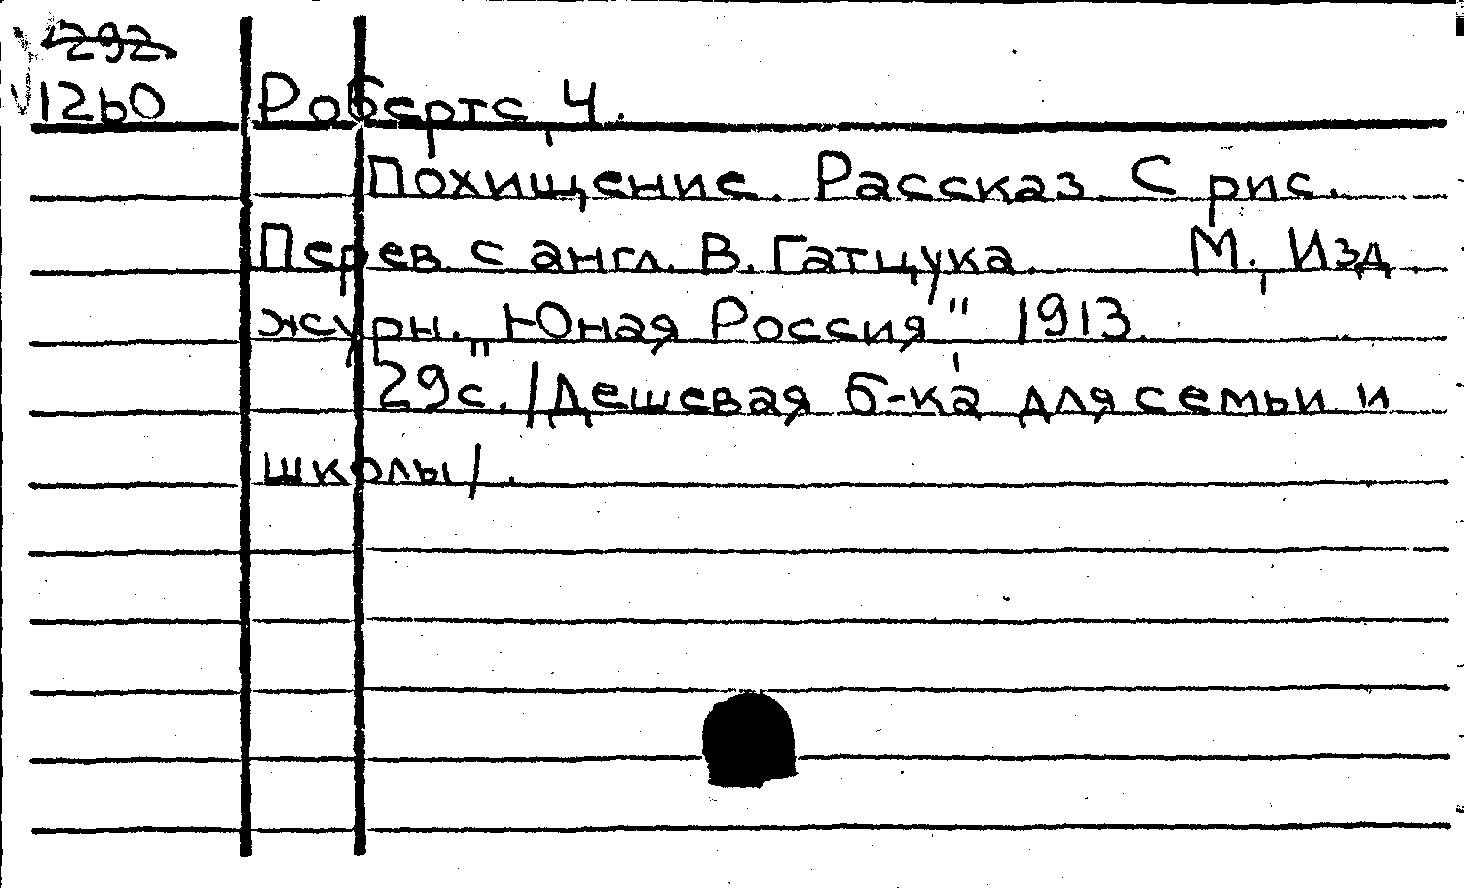 292
1260 Робертс, Ч.
Похищение. Рассказ. С рис.
Перев. с англ. В. Гатцука. М., Изд.
журн. "Юная Россия", 1913.
29с. /Дешевая б-ка для семьи и
школы/.